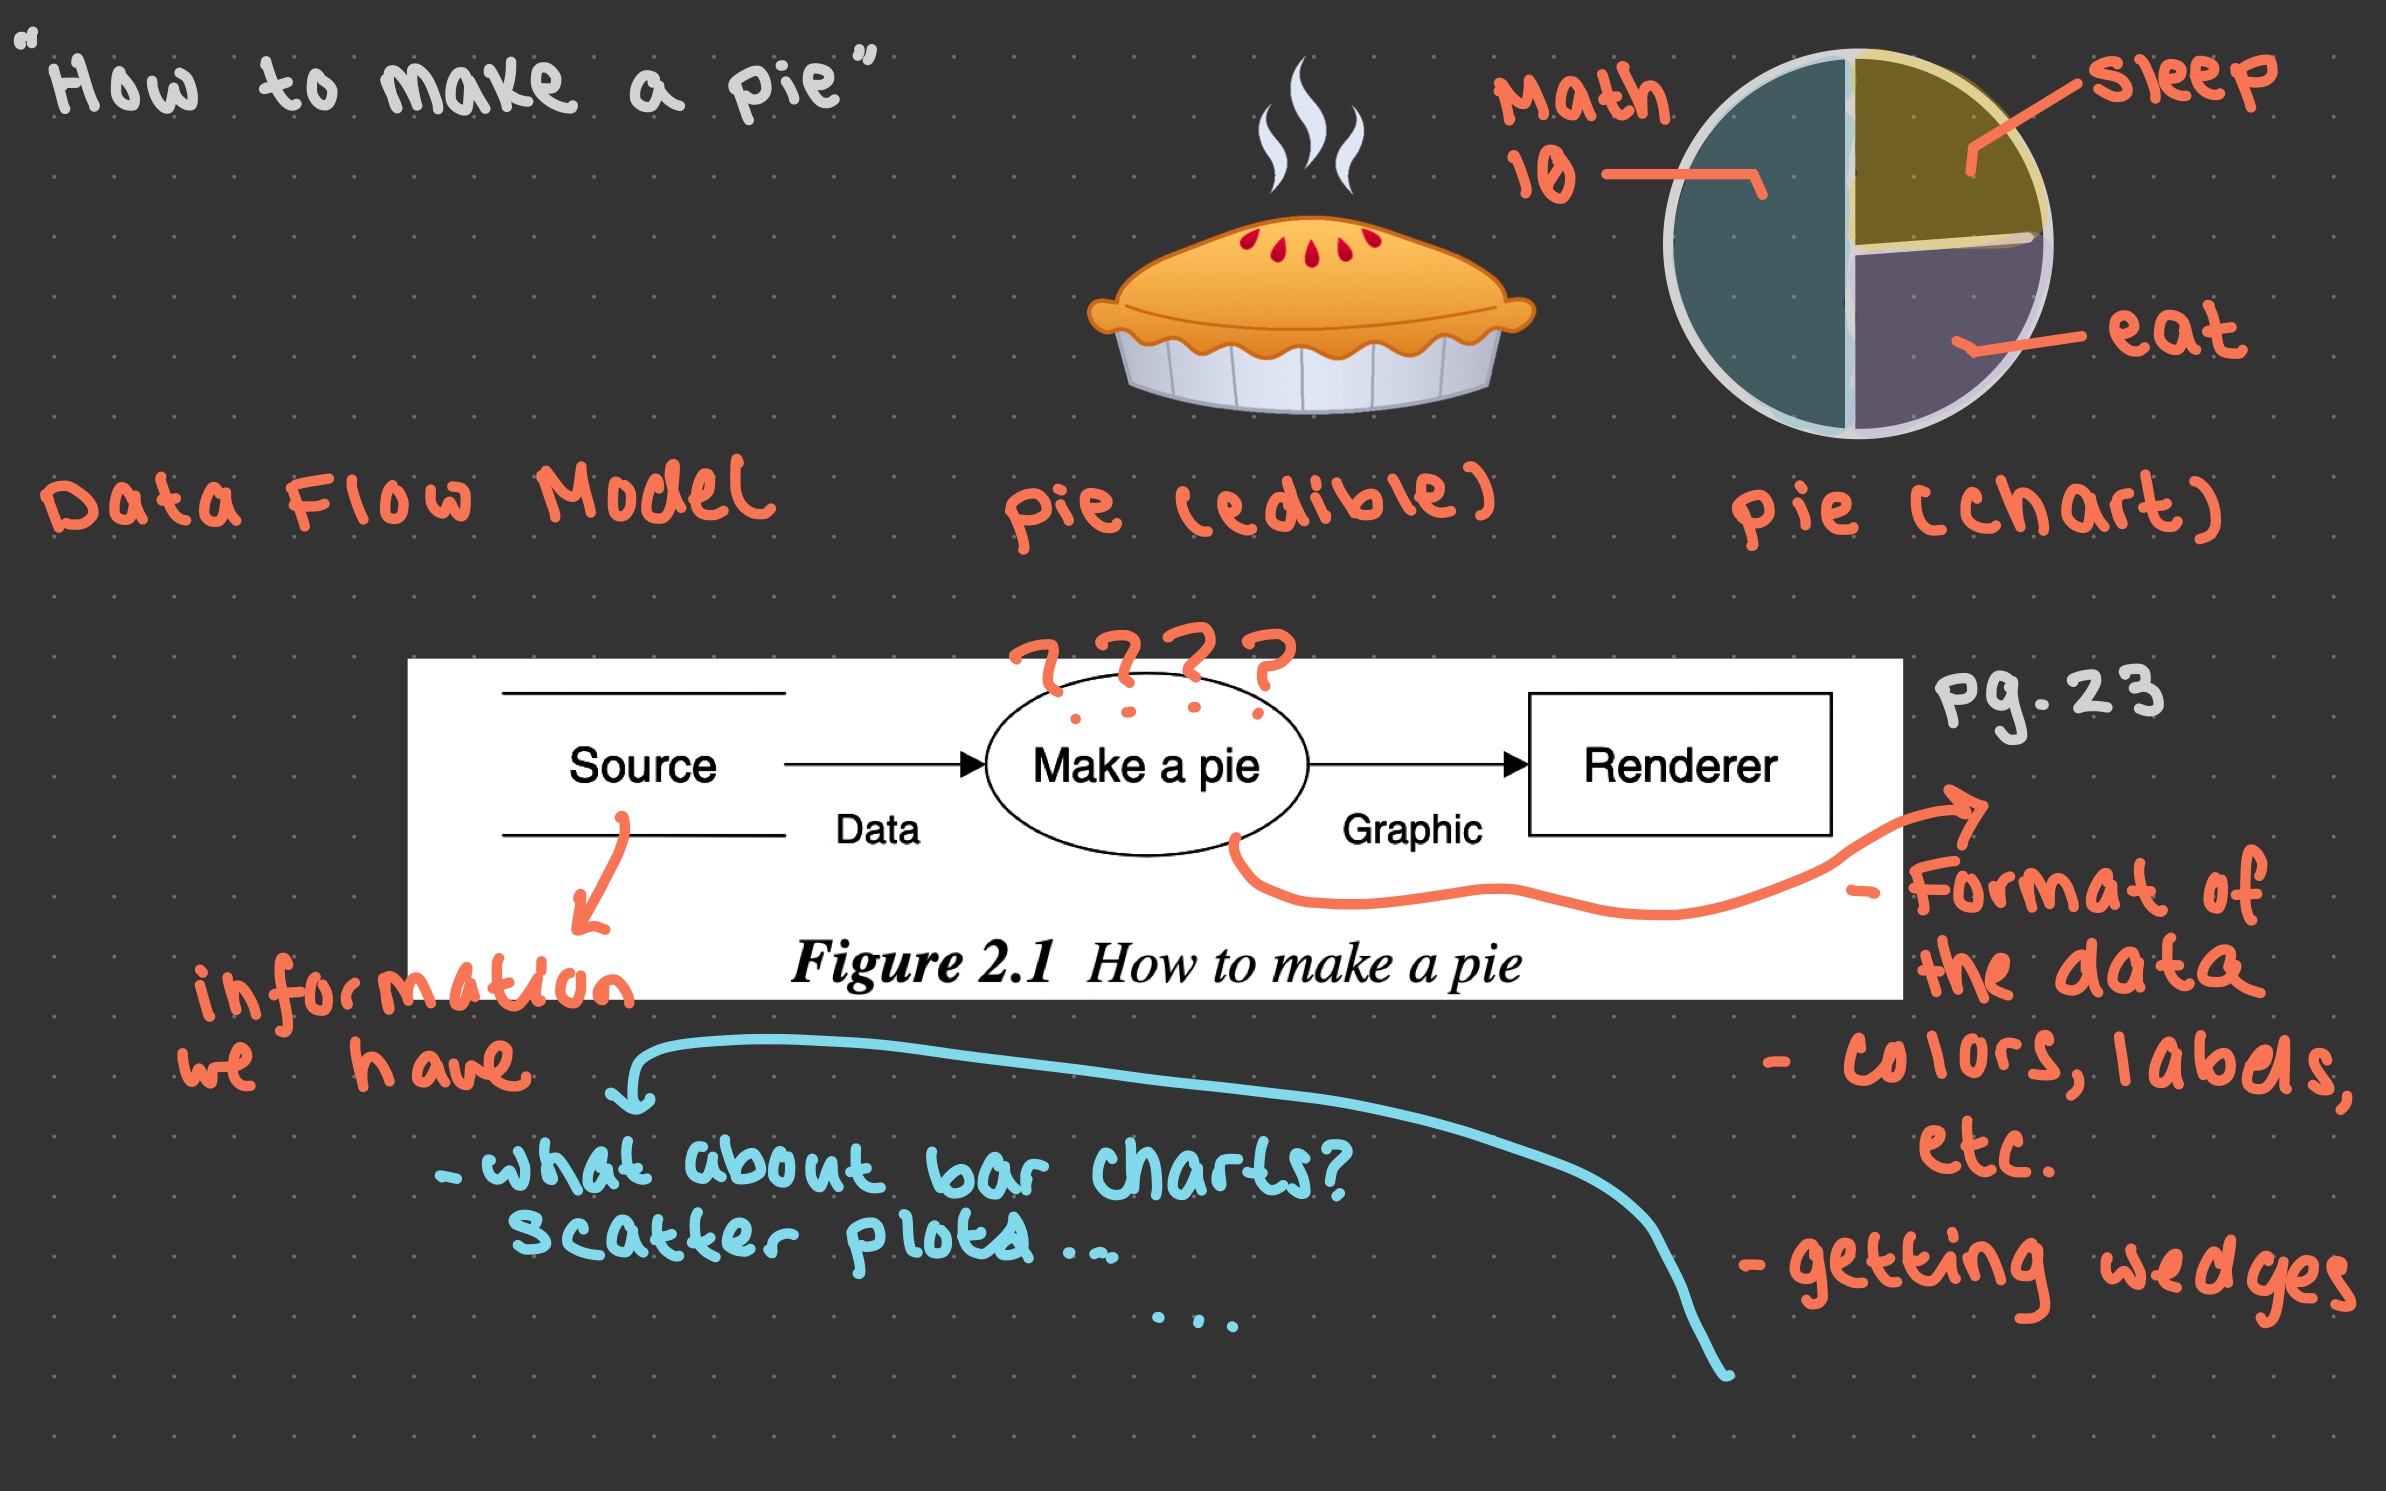 "How to make a pie"
Math
10
sleep
eat
Data Flow Model
pie (edible)
pie (chart)
? ? ? ?
pg. 23
Source
Data
Make a pie
Graphic
Renderer
Figure 2.1 How to make a pie
information
we have
- Format of
the data
- colors, labels,
etc.
- getting wedges
- what about bar charts?
scatter plots ...
...